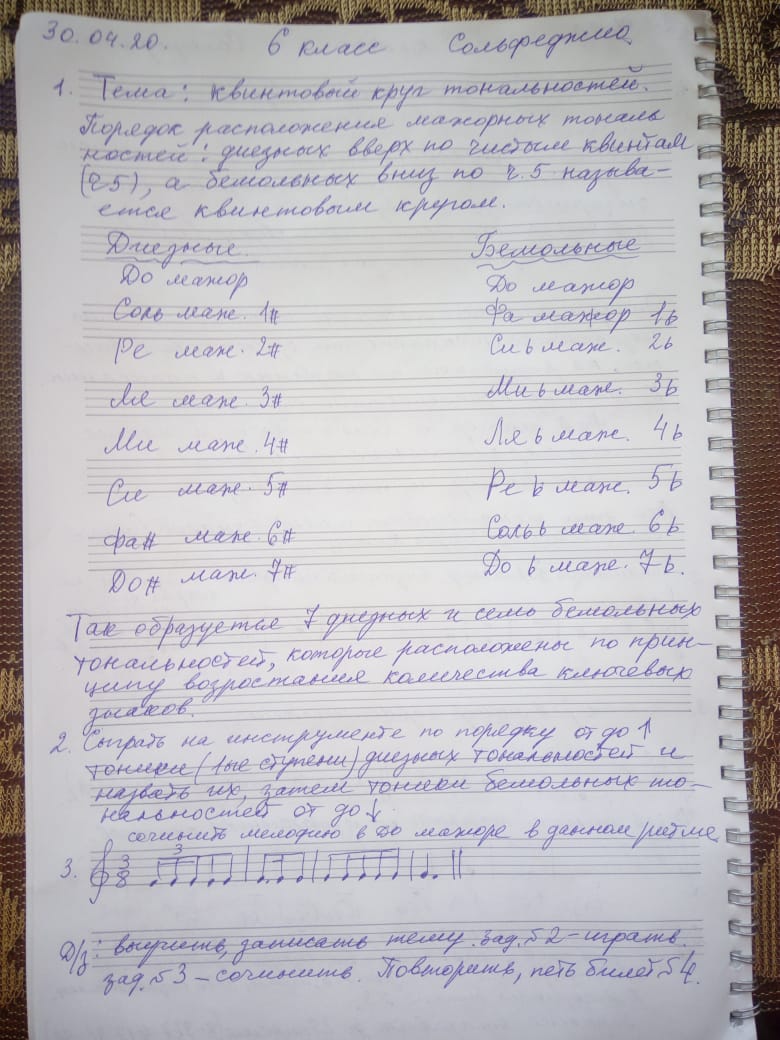 30.04.20. 6 класс Сольфеджио
1. Тема: квинтовый круг тональностей.
Порядок расположения мажорных тональ
ностей: диезных вверх по чистым квинтам
(ч5), а бемольных вниз по ч.5 называ-
ется квинтовым кругом.
Диезные. Бемольные
До мажор До мажор
Соль маж. 1# Фа мажор 1b
Ре маж. 2# Си b маж. 2b
Ля маж. 3# Ми b маж. 3b
Ми маж. 4# Ля b маж. 4b
Си маж. 5# Ре b маж. 5b
Фа# маж. 6# Соль b маж. 6b
До# маж. 7# До b маж. 7b.
Так образуется 7 диезных и семь бемольных
тональностей, которые расположены по прин-
ципу возростания количества ключевых
знаков.
2. Сыграть на инструменте по порядку от до ↑
тоники (1ые ступени) диезных тональностей и
назвать их, затем тоники бемольных то-
нальностей от до ↓
сочинить мелодию в До мажоре в данном ритме
3. 3 8 3
Д/з: выучить, записать тему. зад. №2 - играть.
зад. №3 - сочинить. Повторить, петь билет №4.